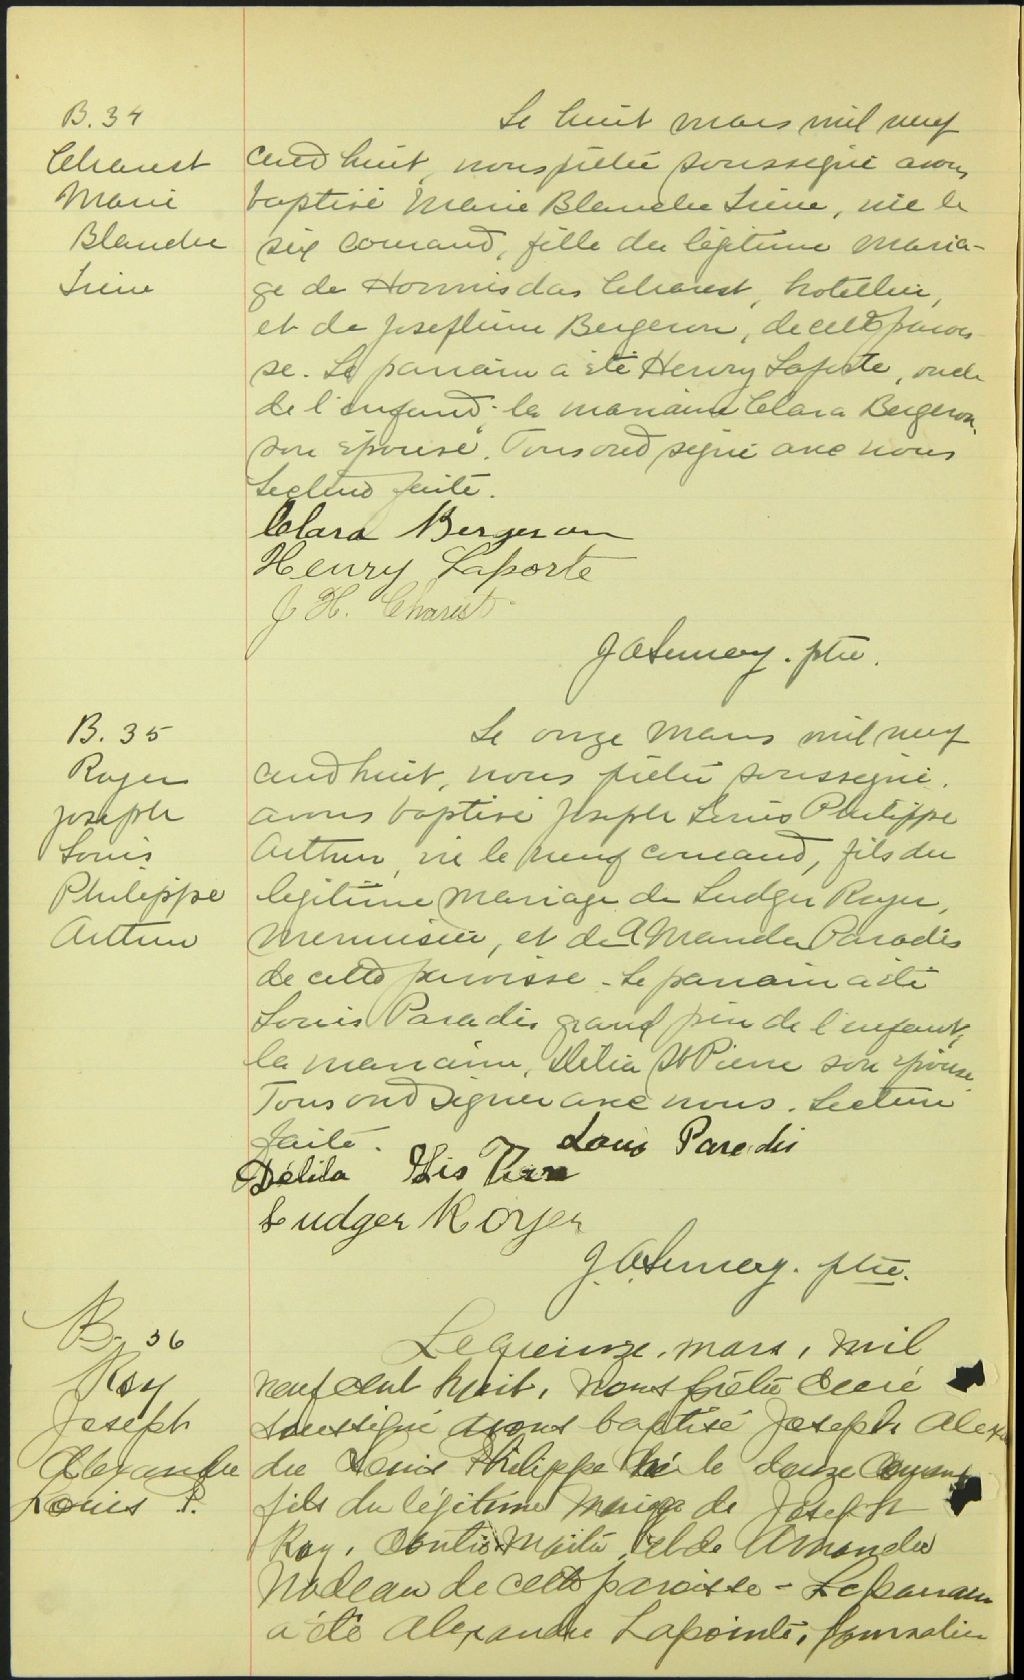 B. 34
Charest
Marie
Blanche
Irène
Le huit mars mil neuf
cent huit, nous prêtre soussigné avons
baptisé Marie Blanche Irène, née le
six courant, fille du légitime maria-
ge de Hormisdas Charest, hotellier,
et de Josephine Bergeron, de cette parois-
se. Le parrain a été Henry Laporte, oncle
de l'enfant; la marraine Clara Bergeron,
son épouse. Tous ont signé avec nous
Lecture faite.
Clara Bergeron
Henry Laporte
J. H. Charest
J A Lemay. ptre.
B. 35
Royer
Joseph
Louis
Philippe
Arthur
Le onze mars mil neuf
cent huit, nous prêtre soussigné.
avons baptisé Joseph Louis Philippe
Arthur, né le neuf courant, fils du
légitime mariage de Ludger Royer,
menuisier, et de Amanda Paradis
de cette paroisse - Le parrain a été
Louis Paradis grand père de l'enfant,
la marraine, Délia St Pierre son épouse
Tous ont signer avec nous. Lecture
faite. Louis Paradis
Délila
Ludger Royer
J. A Lemay. ptre.
B. 36
Roy
Joseph
Alexandre
Louis P.
Le quinze, mars, mil
neuf cent huit, nous prêtre curé
soussigné avons baptisé Joseph Alexan
dre Louis Philippe né le douze courant
fils du légitime mariage de Joseph
Roy, contre-maître, et de Amanda
Nadeau de cette paroisse - Le parrain
a été Alexandre Lapointe, journalier